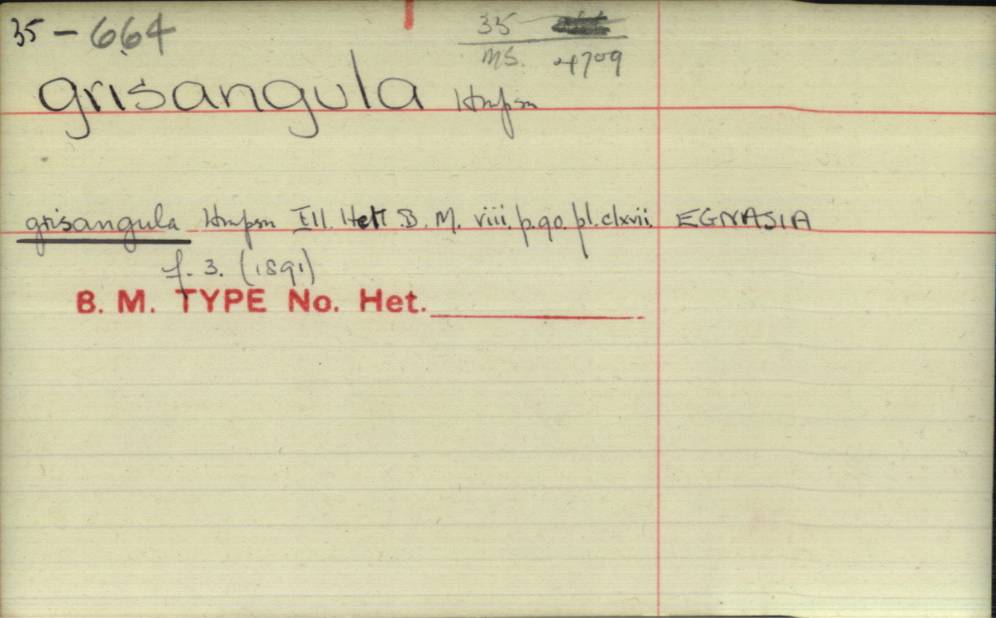 35-664
35
MS. 4709
grisangula Hmpsn
grisangula Hmpsn Ill. Het. B.M. viii. p.90. pl.clxvii. EGNASIA
f. 3. (1891)
B. M. TYPE No. Het.